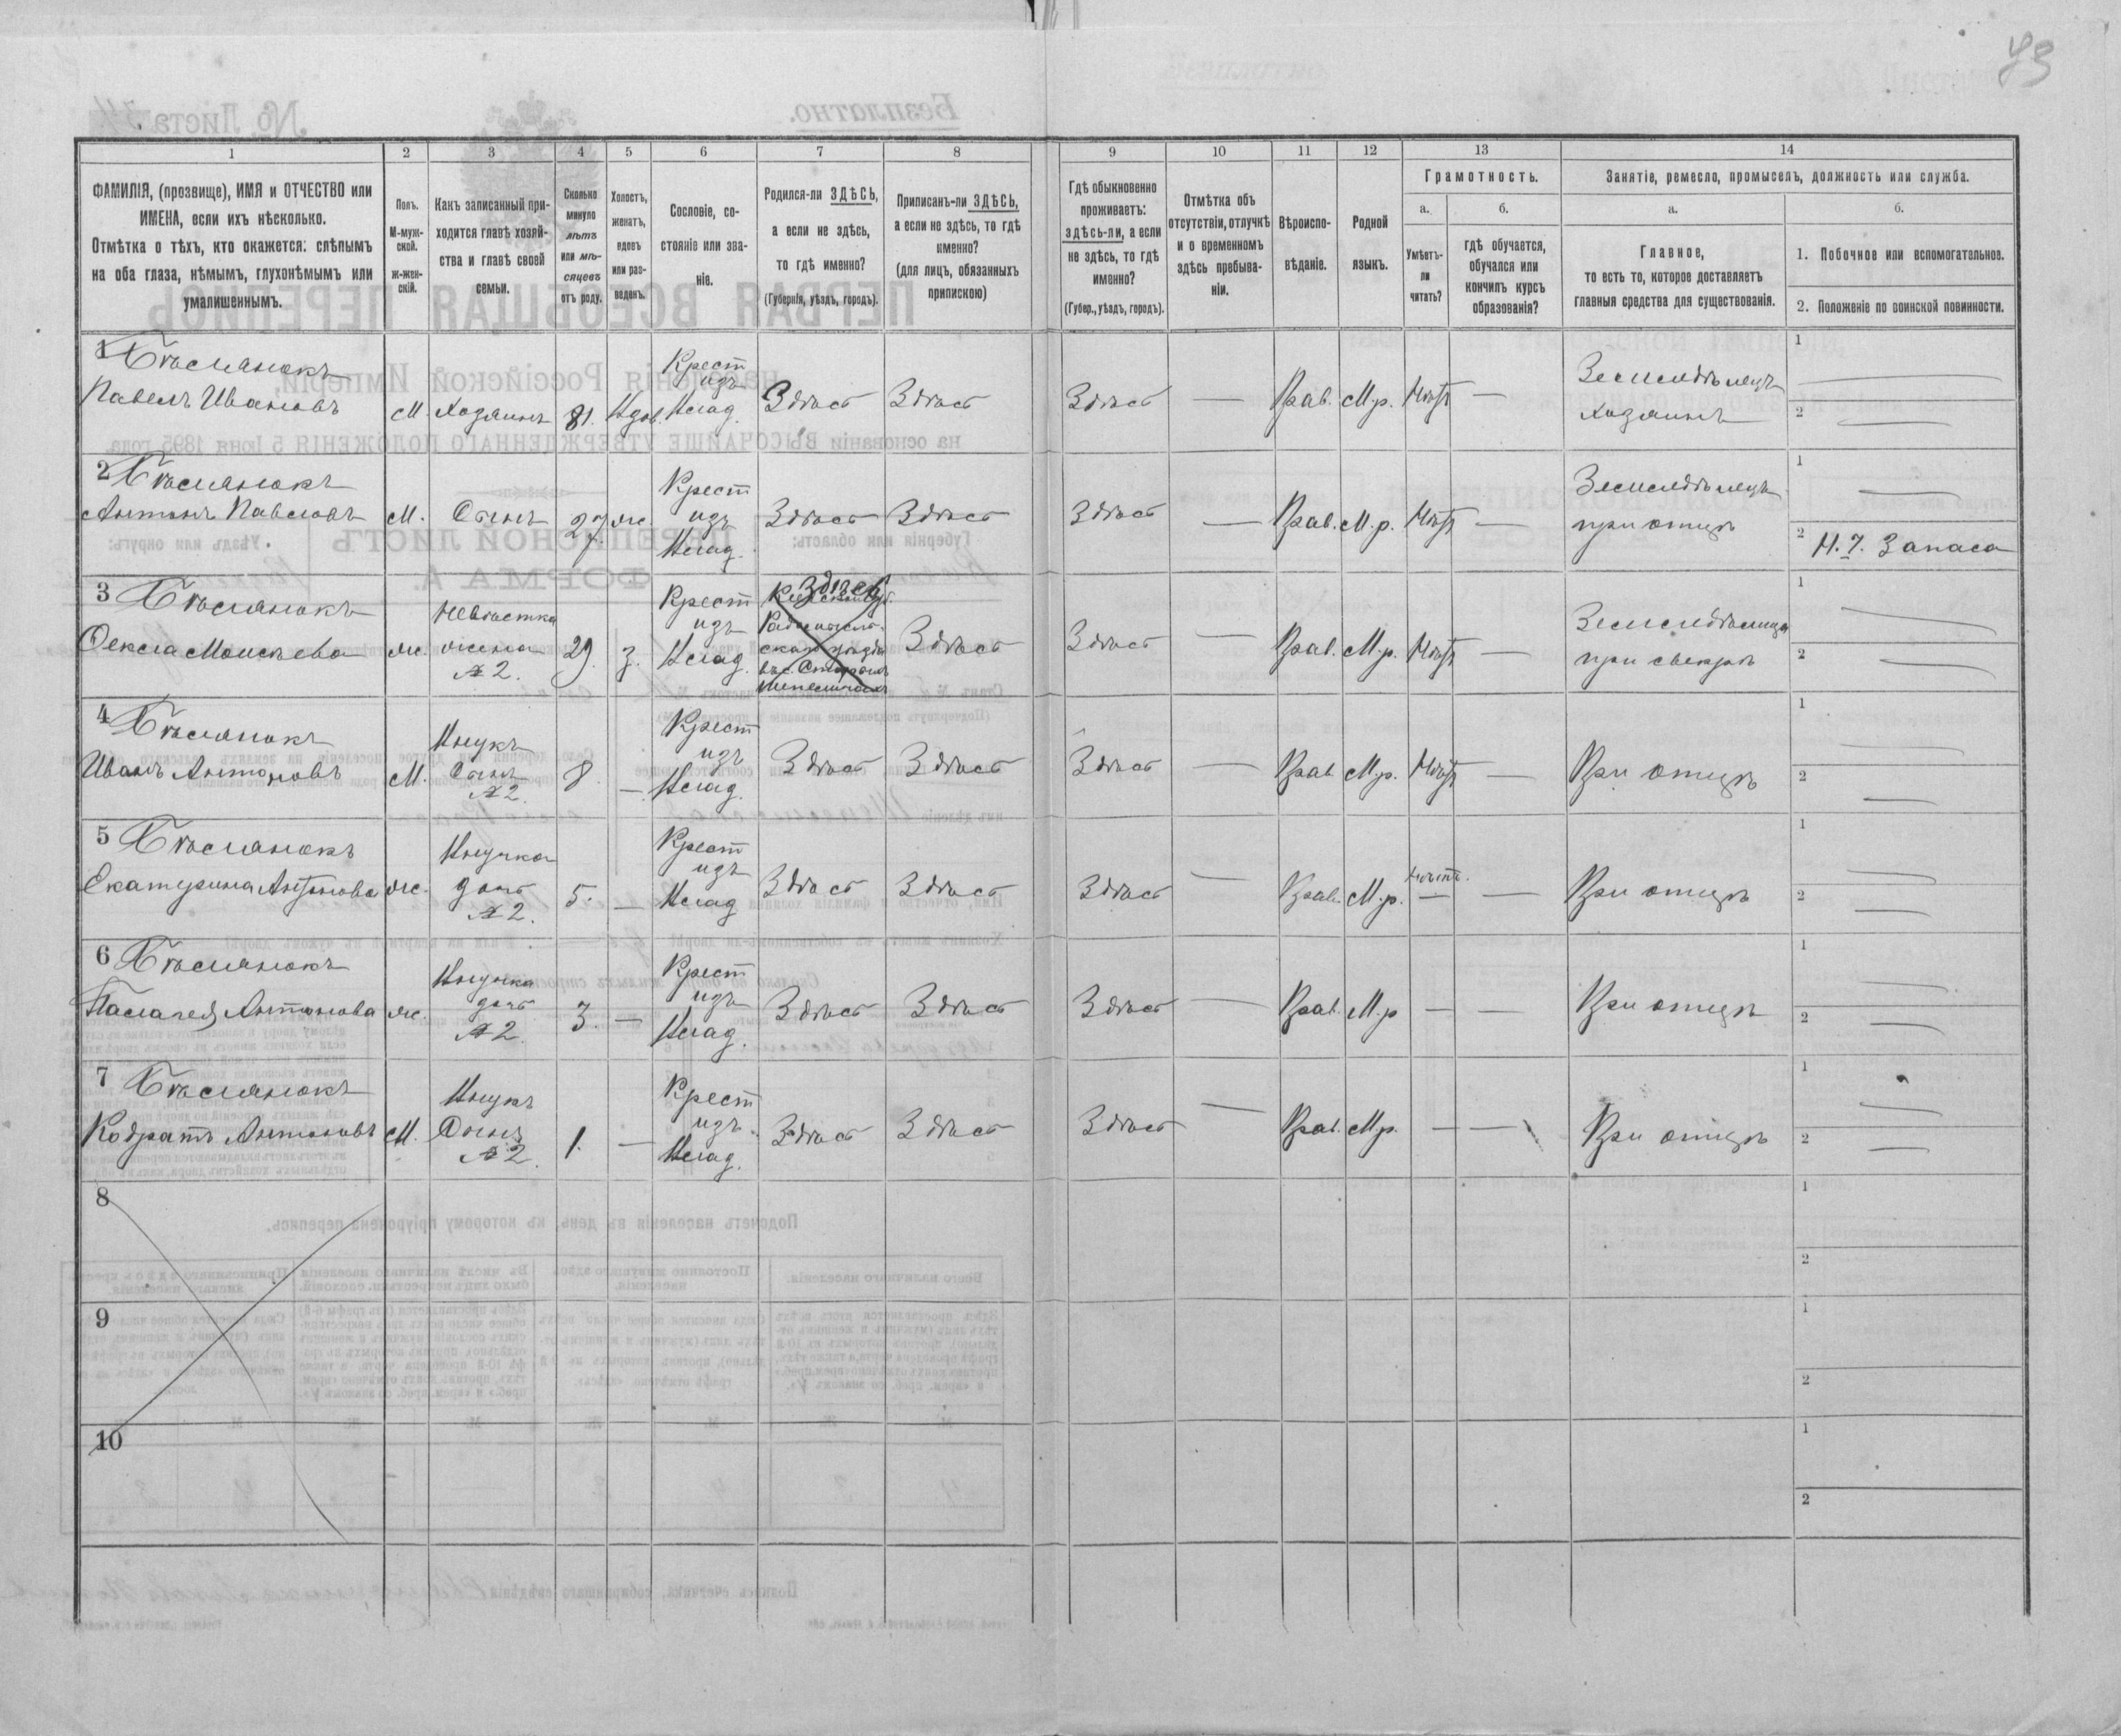 93
1
2
3
4
5
6
7
8
9
10
11
12
13
14
ФАМИЛІЯ, (прозвище), ИМЯ и ОТЧЕСТВО или
ИМЕНА, если ихъ нѣсколько.
Отмѣтка о тѣхъ, кто окажется: слѣпымъ
на оба глаза, нѣмымъ, глухонѣмымъ или
умалишеннымъ.
Полъ.
М-муж-
ской.
Ж-жен-
скій.
Какъ записанный при-
ходится главѣ хозяй-
ства и главѣ своей
семьи.
Сколько
минуло
лѣтъ
или мѣ-
сяцевъ
отъ роду.
Холостъ,
женатъ,
вдовъ
или раз-
веденъ.
Сословіе, со-
стояніе или зва-
ніе.
Родился-ли ЗДѢСЬ,
а если не здѣсь,
то гдѣ именно?
(Губернія, уѣздъ, городъ).
Приписанъ-ли ЗДѢСЬ,
а если не здѣсь, то гдѣ
именно?
(для лицъ, обязанныхъ
припискою)
Гдѣ обыкновенно
проживаетъ:
здѣсь-ли, а если
не здѣсь, то гдѣ
именно?
(Губер., уѣздъ, городъ).
Отмѣтка объ
отсутствіи, отлучкѣ
и о временномъ
здѣсь пребыва-
ніи.
Вѣроиспо-
вѣданіе.
Родной
языкъ.
Грамотность.
а.
Умѣетъ-
ли
читать?
б.
гдѣ обучается,
обучался или
кончилъ курсъ
образованія?
Занятіе, ремесло, промыселъ, должность или служба.
а.
Главное,
то есть то, которое доставляетъ
главныя средства для существованія.
б.
1. Побочное или вспомогательное.
2. Положеніе по воинской повинности.
1
Павелъ Ивановъ
М.
Хозяинъ
81.
Вдов.
Крест
изъ
Влад.
Здѣсь
Здѣсь
Здѣсь
—
Прав.
М.р.
Нѣтъ
—
Земледѣлецъ
Хозяинъ
1 —
2 —
2
Антонъ Павловъ
М.
Сынъ
27.
ж
Крест
изъ
Влад.
Здѣсь
Здѣсь
Здѣсь
—
Прав.
М.р.
Нѣтъ
—
Земледѣлецъ
при отцѣ
1 —
2 Н. Ч. Запаса
3
Фекла Моисѣева
ж.
Невѣстка
жена
№ 2.
29.
з.
Крест
изъ
Влад.
Здѣсь
Здѣсь
Здѣсь
—
Прав.
М.р.
Нѣтъ
—
Земледѣлица
при свекрѣ
1 —
2 —
4
Иванъ Антоновъ
М.
Внукъ
Сынъ
№ 2.
8.
—
Крест
изъ
Влад.
Здѣсь
Здѣсь
Здѣсь
—
Прав.
М.р.
Нѣтъ
—
При отцѣ
1 —
2 —
5
Екатерина Антонова
ж.
Внучка
дочь
№ 2.
5.
—
Крест
изъ
Влад
Здѣсь
Здѣсь
Здѣсь
—
Прав.
М.р.
Нѣтъ.
—
—
При отцѣ
1 —
2 —
6
Палагея Антонова
ж.
Внучка
дочь
№ 2.
3.
—
Крест
изъ
Влад.
Здѣсь
Здѣсь
Здѣсь
—
Прав.
М.р
—
—
При отцѣ
1 —
2 —
7
Кодратъ Антоновъ
М.
Внукъ
Сынъ
№ 2.
1.
—
Крест
изъ
Влад.
Здѣсь
Здѣсь
Здѣсь
—
Прав.
М.р.
—
—
При отцѣ
1 —
2 —
8
1
2
9
1
2
10
1
2